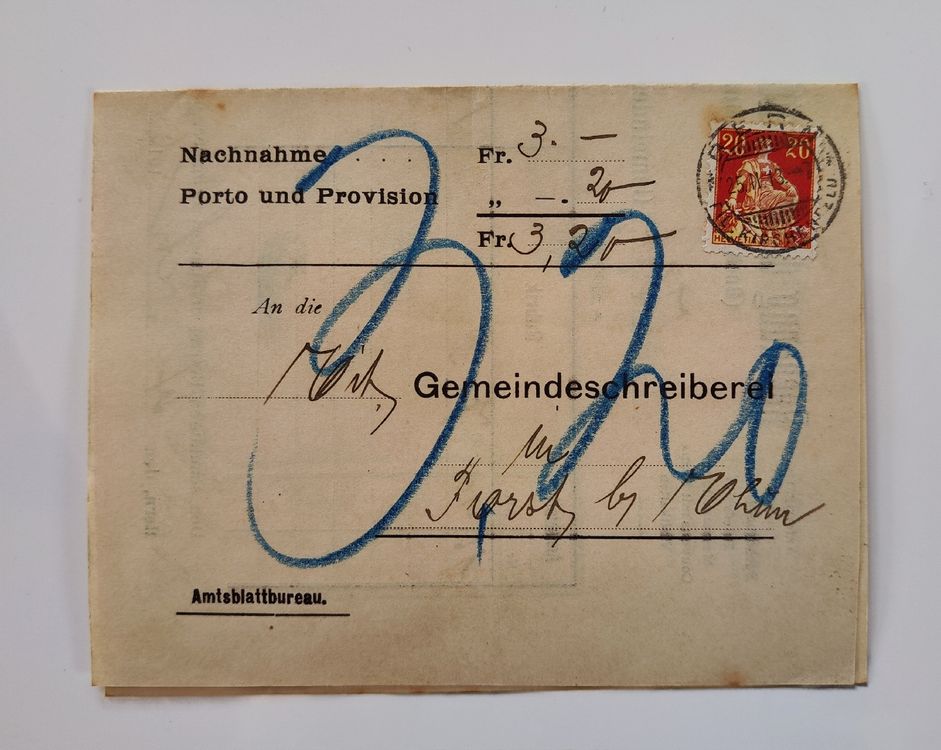 Nachnahme . . . . Fr. 3. —
Porto und Provision „ —. 20
Fr. 3,20
An die
Gemeindeschreiberei
in
Forst by Thun
3,20
Amtsblattbureau.
20 20
HELVETIA
BERN
KIRCHENFELD